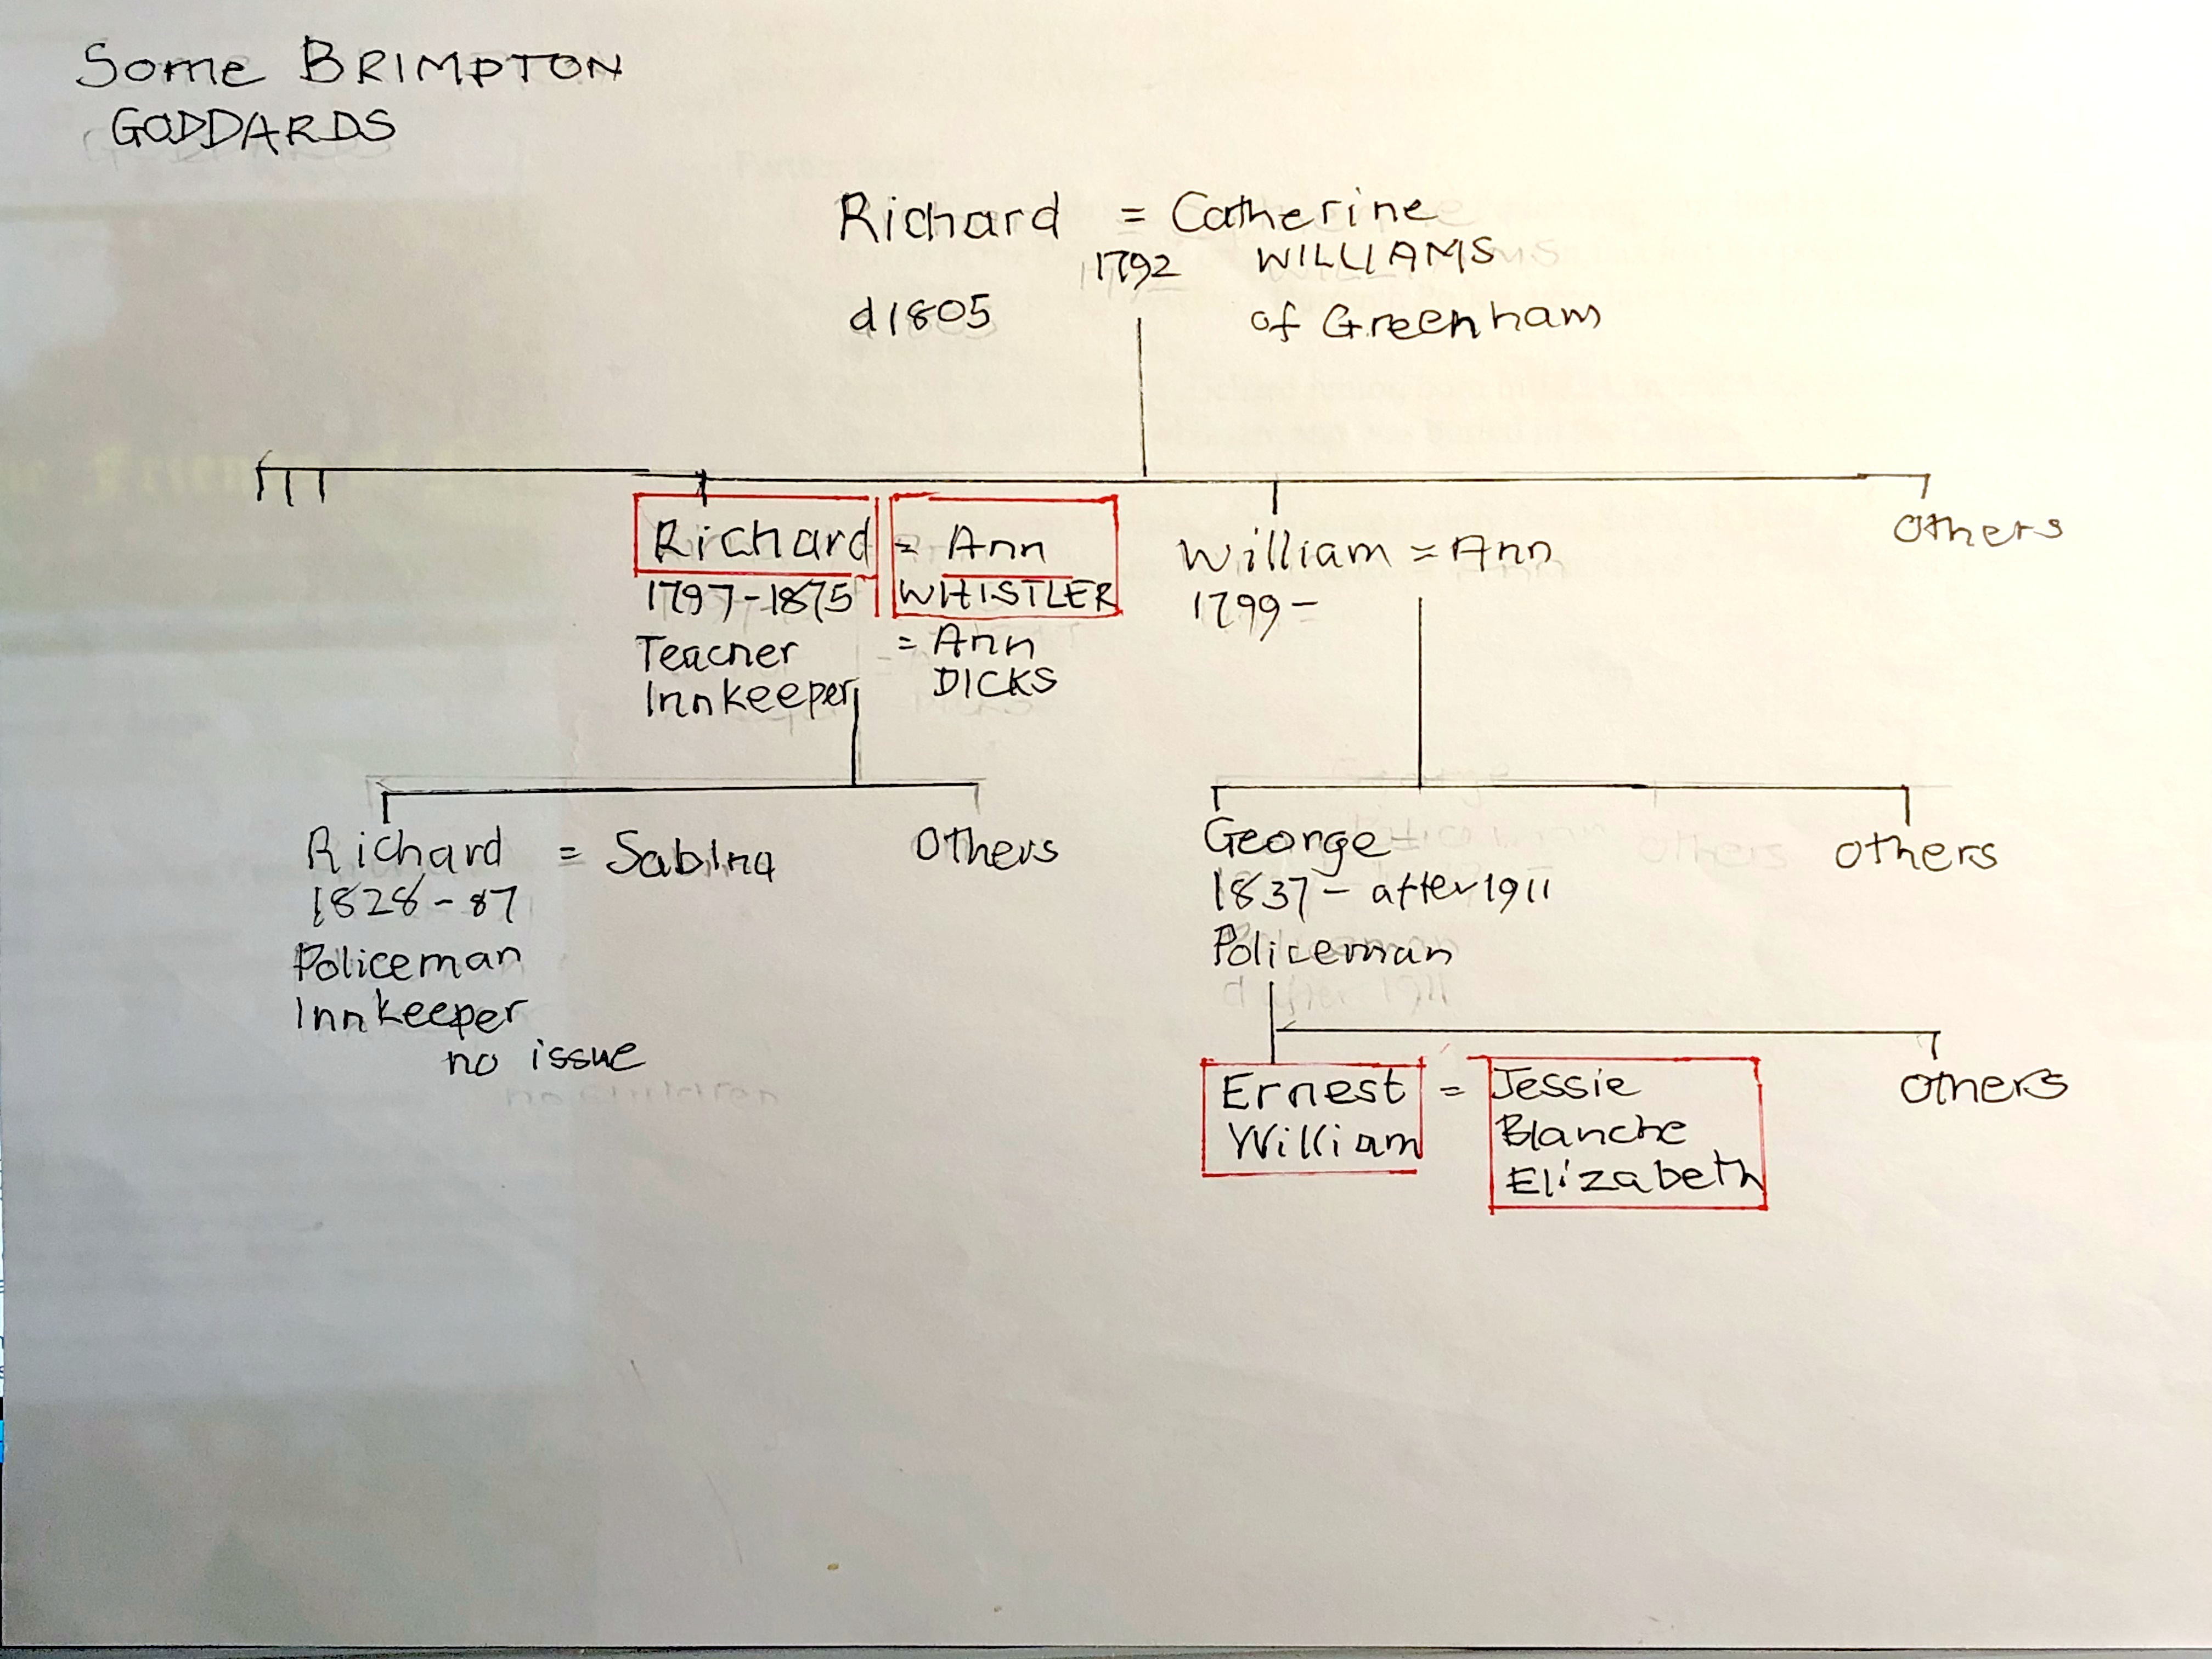 Some BRIMPTON
GODDARDS
Richard = Catherine
1792 WILLIAMS
d1805 of Greenham
Others
Richard = Ann
William = Ann
1797-1875 WHISTLER
1799-
Teacher = Ann
Innkeeper DICKS
Richard = Sabina
Others
George
Others
1828-87
1837- after 1911
Policeman
Policeman
Innkeeper
no issue
Ernest = Jessie
William Blanche
Elizabeth
Others